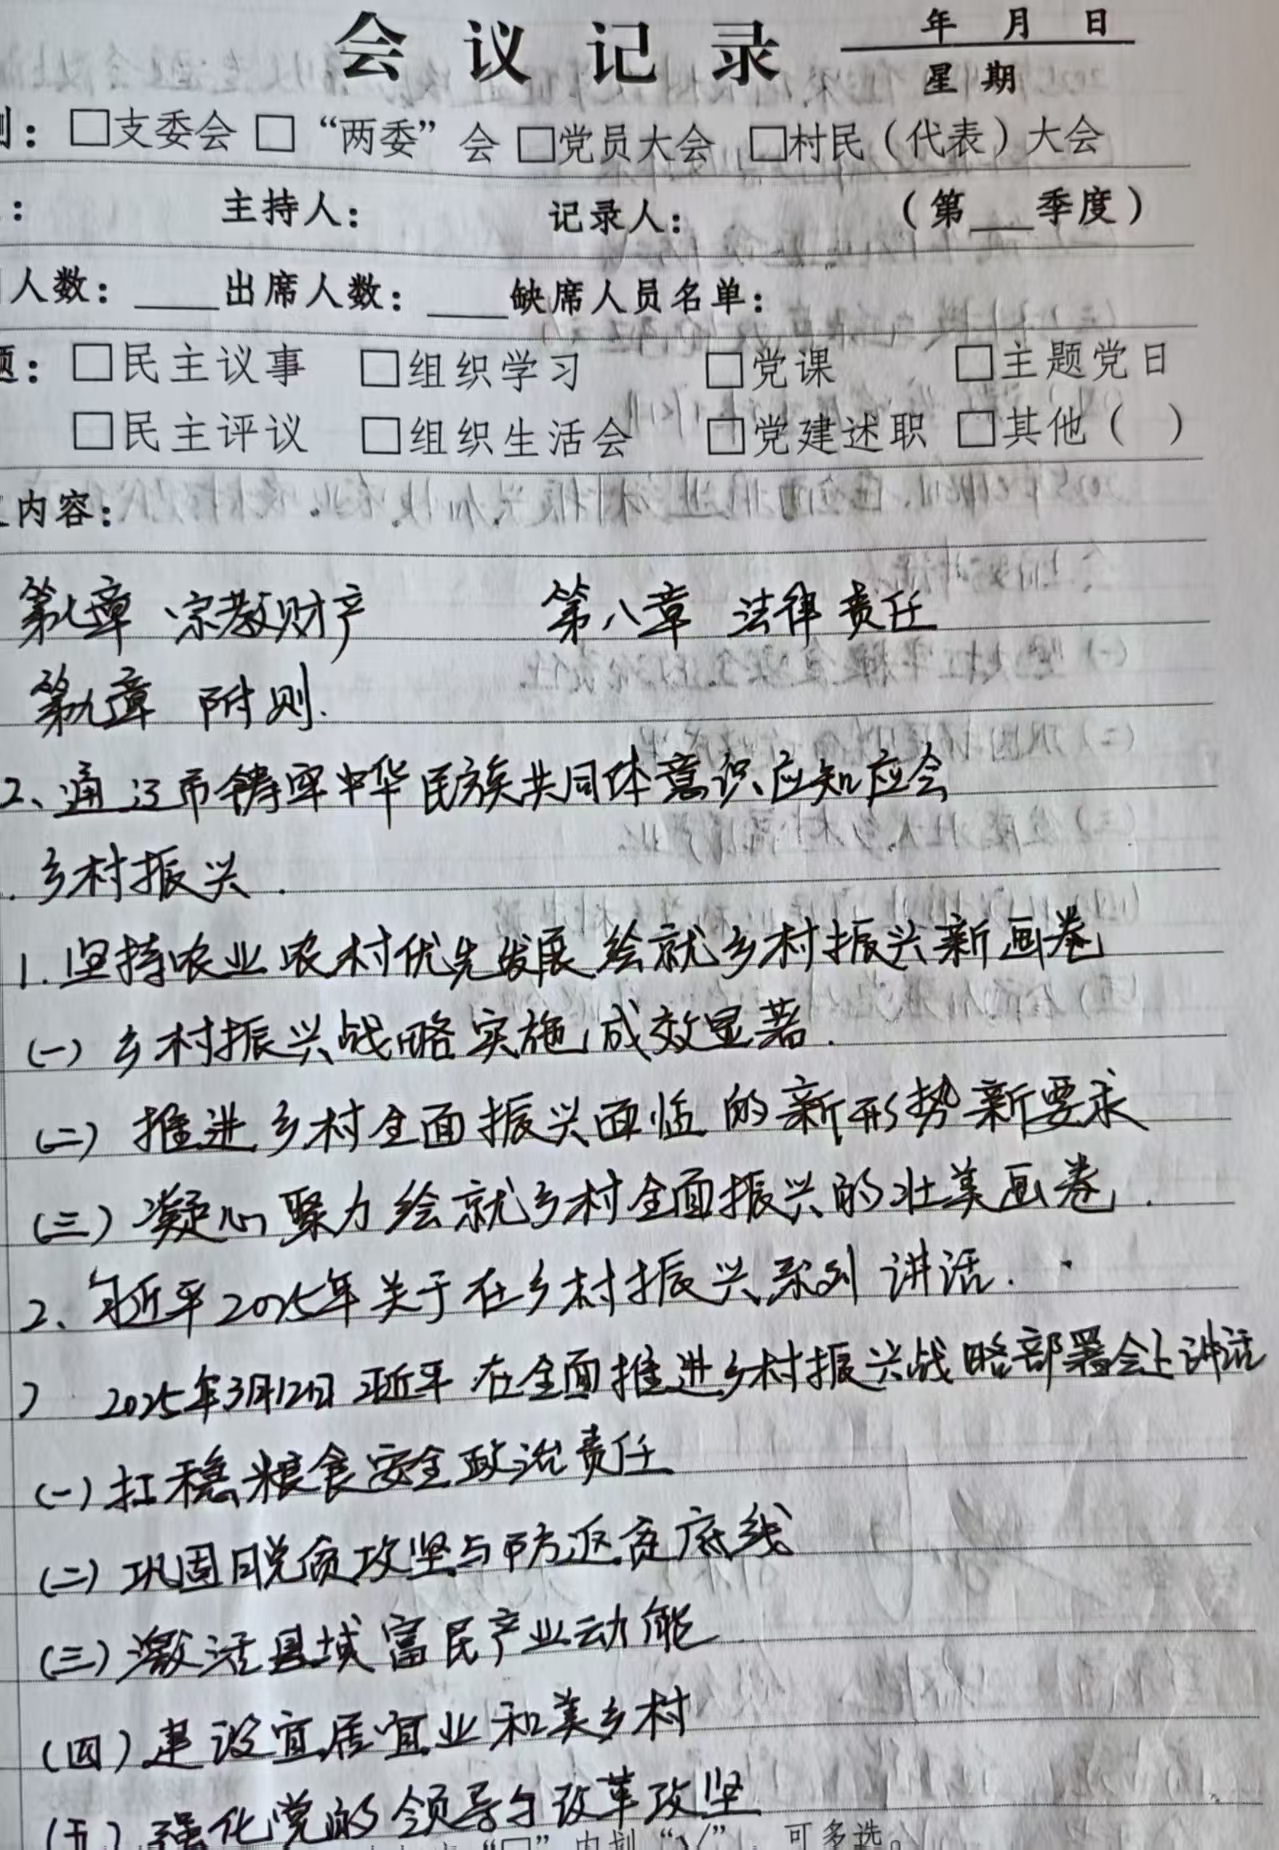 会议记录 年 月 日
星期
：□支委会 □“两委”会 □党员大会 □村民（代表）大会
： 主持人： 记录人： （第___季度）
人数：____出席人数：____缺席人员名单：
题：□民主议事 □组织学习 □党课 □主题党日
□民主评议 □组织生活会 □党建述职 □其他（ ）
内容：
第七章 宗教财产 第八章 法律责任
第九章 附则.
2、通辽市铸牢中华民族共同体意识应知应会
. 乡村振兴.
1. 坚持农业农村优先发展 绘就乡村振兴新画卷
(一) 乡村振兴战略实施,成效显著.
(二) 推进乡村全面振兴面临的新形势新要求
(三) 凝心聚力绘就乡村全面振兴的壮美画卷.
2、习近平2025年关于在乡村振兴系列讲话.
) 2025年3月12日习近平在全面推进乡村振兴战略部署会上讲话
(一) 扛稳粮食安全政治责任
(二) 巩固脱贫攻坚与防返贫底线
(三) 激活县域富民产业动能
(四) 建设宜居宜业和美乡村
(五) 强化党的领导与改革攻坚
“□”内划“√”，可多选。